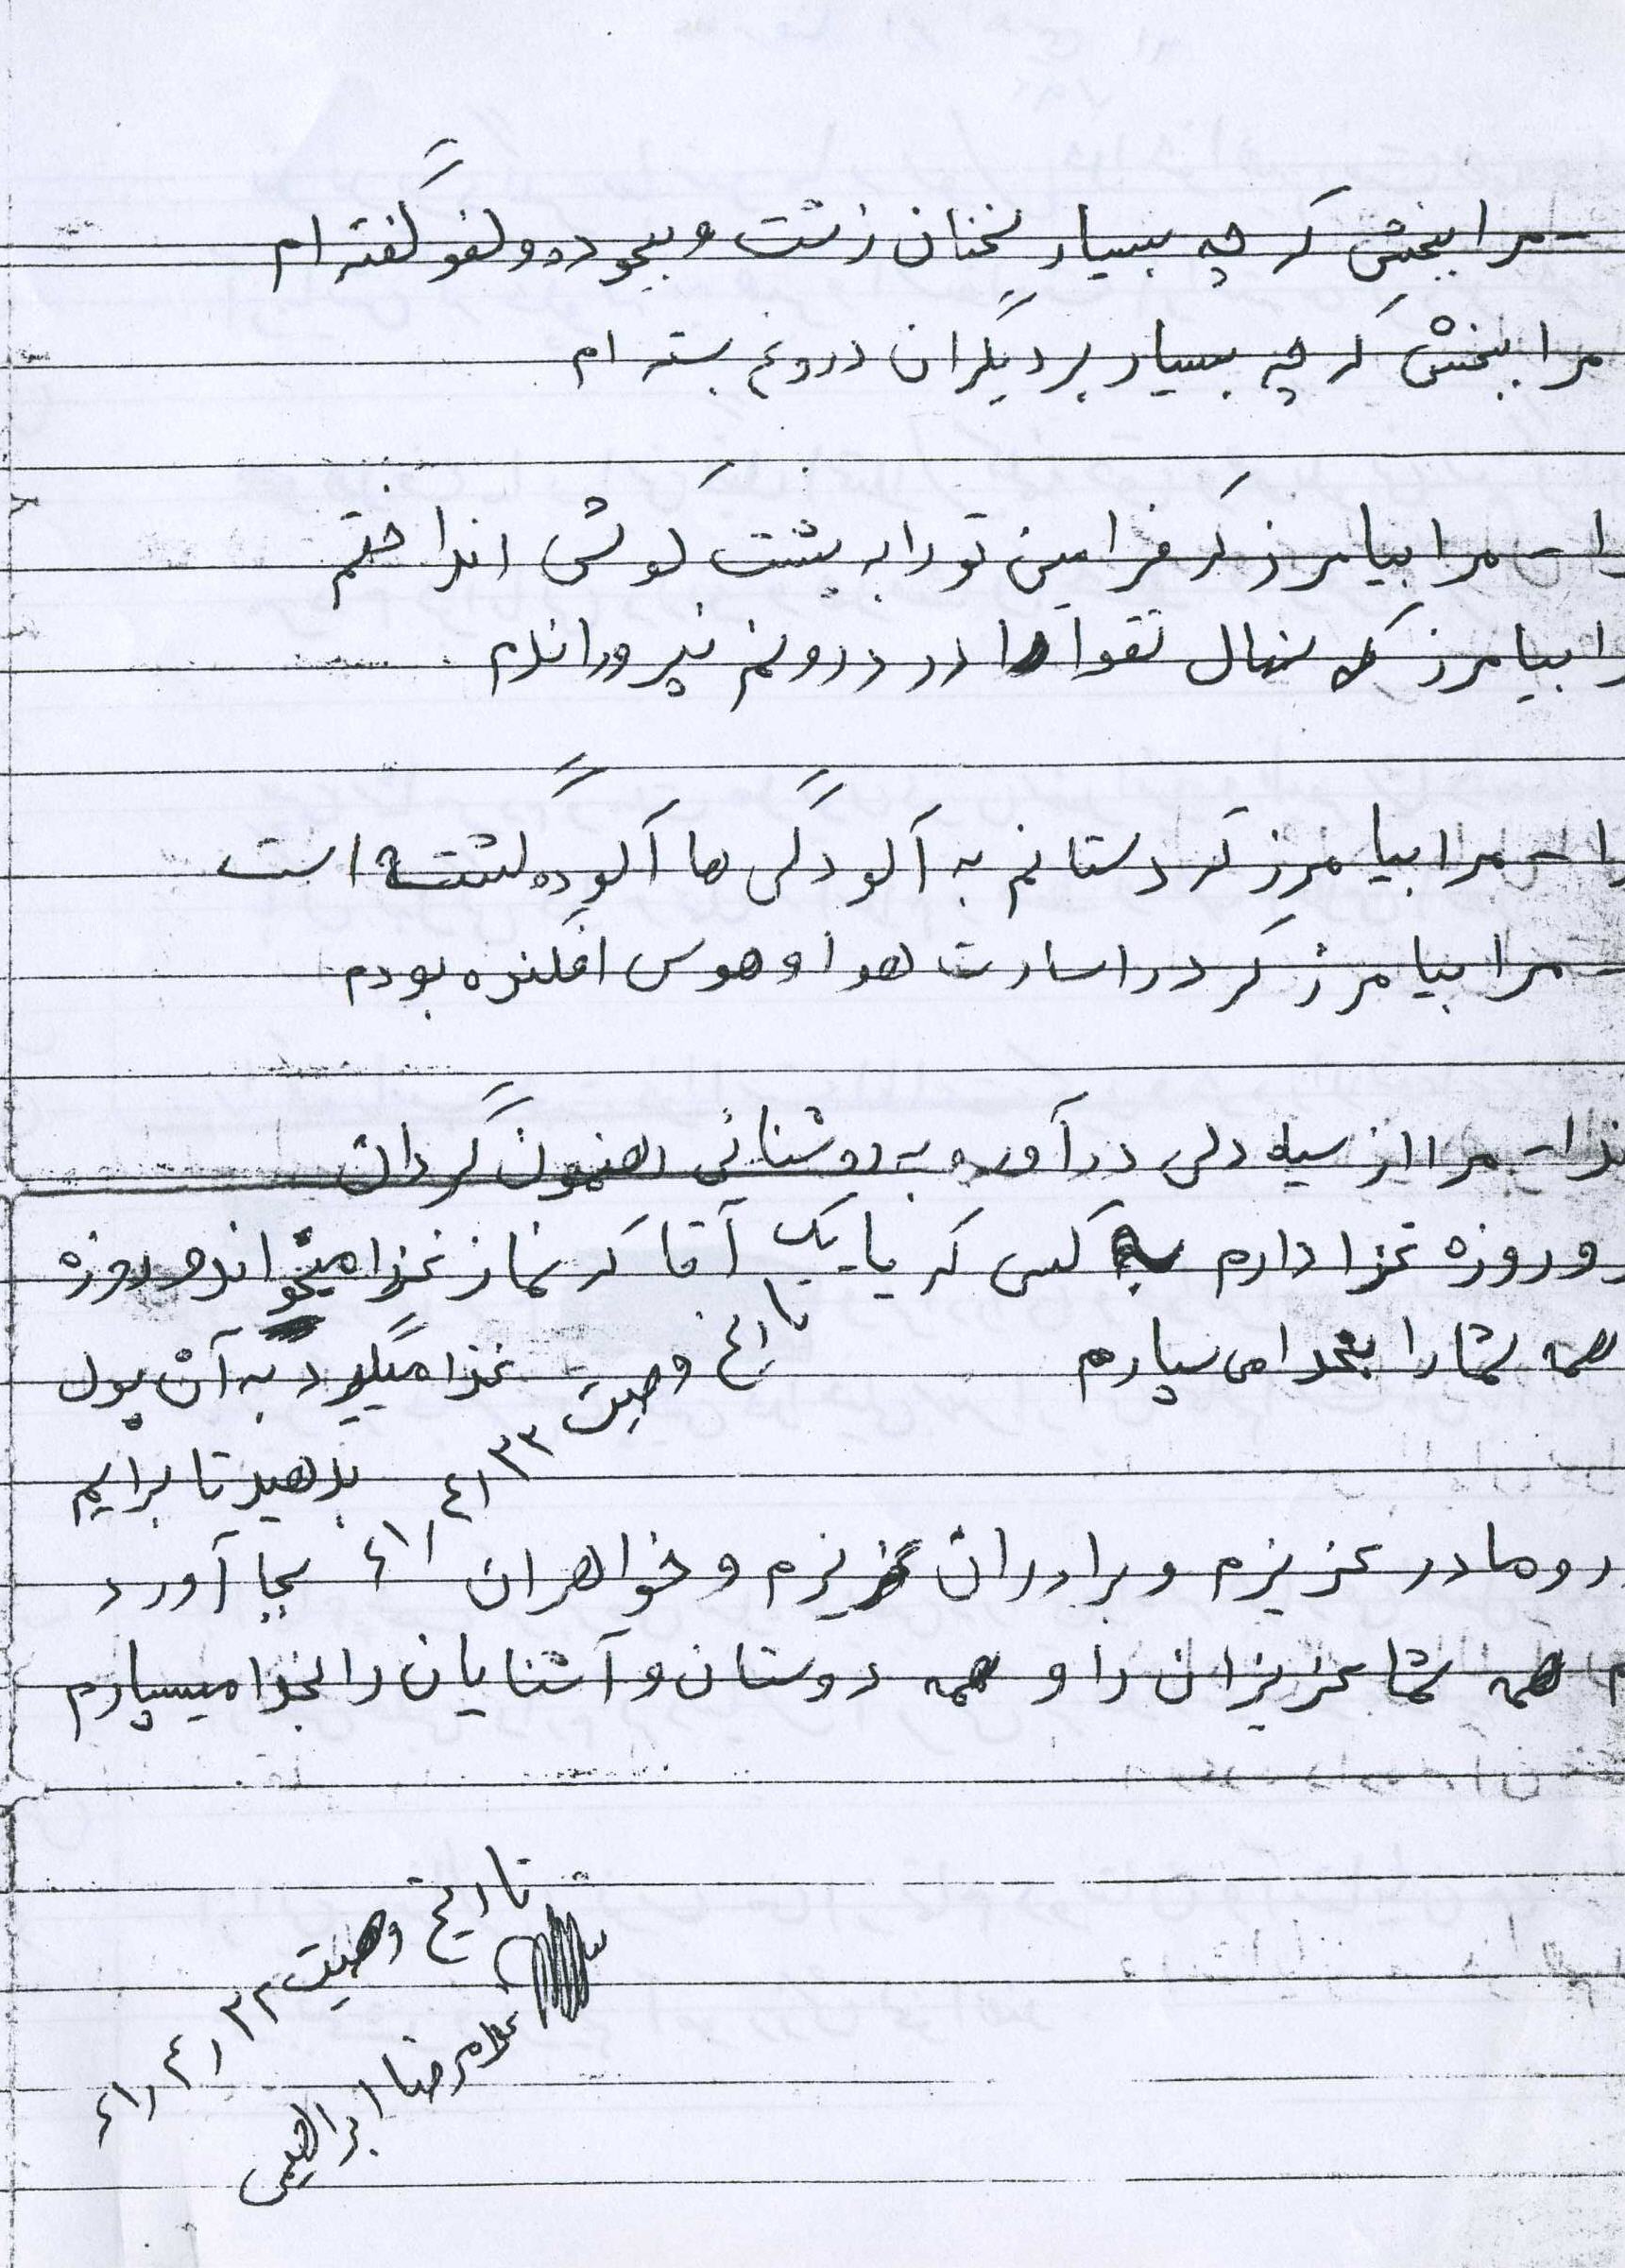 - مرا ببخش که چه بسیار سخنان زشت و بیهوده و لغو گفته ام
مرا ببخش که چه بسیار بر دیگران دروغ بسته ام
را - مرا بیامرز که فرامین تو را به پشت گوش انداختم
را بیامرز که نهال تقوا را در درونم نپروراندم
را - مرا بیامرز که دستانم به آلودگی ها آلوده گشته است
- مرا بیامرز که در اسارت هوا و هوس افکنده بودم
دا - مرا از سیاه دلی در آور و به روشنائی رهنمون گردان
و روزه غزا دارم به کسی که یا یک آقا که نماز غزا میخواند و روزه
همه شما را بخدا می سپارم
غزا میگیرد به آن پول
بدهید تا برایم
بجا آورد
تاریخ وصیت ۳۳ ر ٤ ر ٦١
ر و مادر عزیزم و برادران عزیزم و خواهران
م همه شما عزیزان را و همه دوستان و آشنایان را بخدا میسپارم
تاریخ وصیت ۳۲ ر ٤ ر ٦١
غلامرضا ابراهیمی